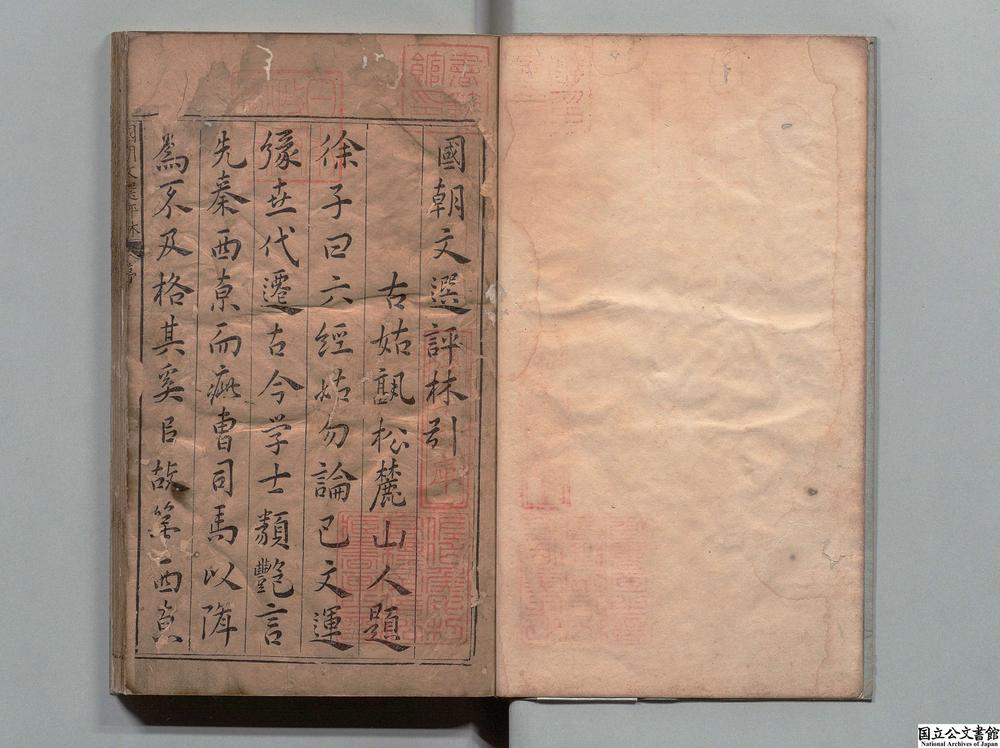 國朝文選評林引
古姑孰松麓山人題
徐子曰六經姑勿論已文運
緣世代遷古今学士類艷言
先秦西京而疵曹司馬以降
為不及格其奚㠯故第西京
國朝文選評林 序
国立公文書館
National Archives of Japan